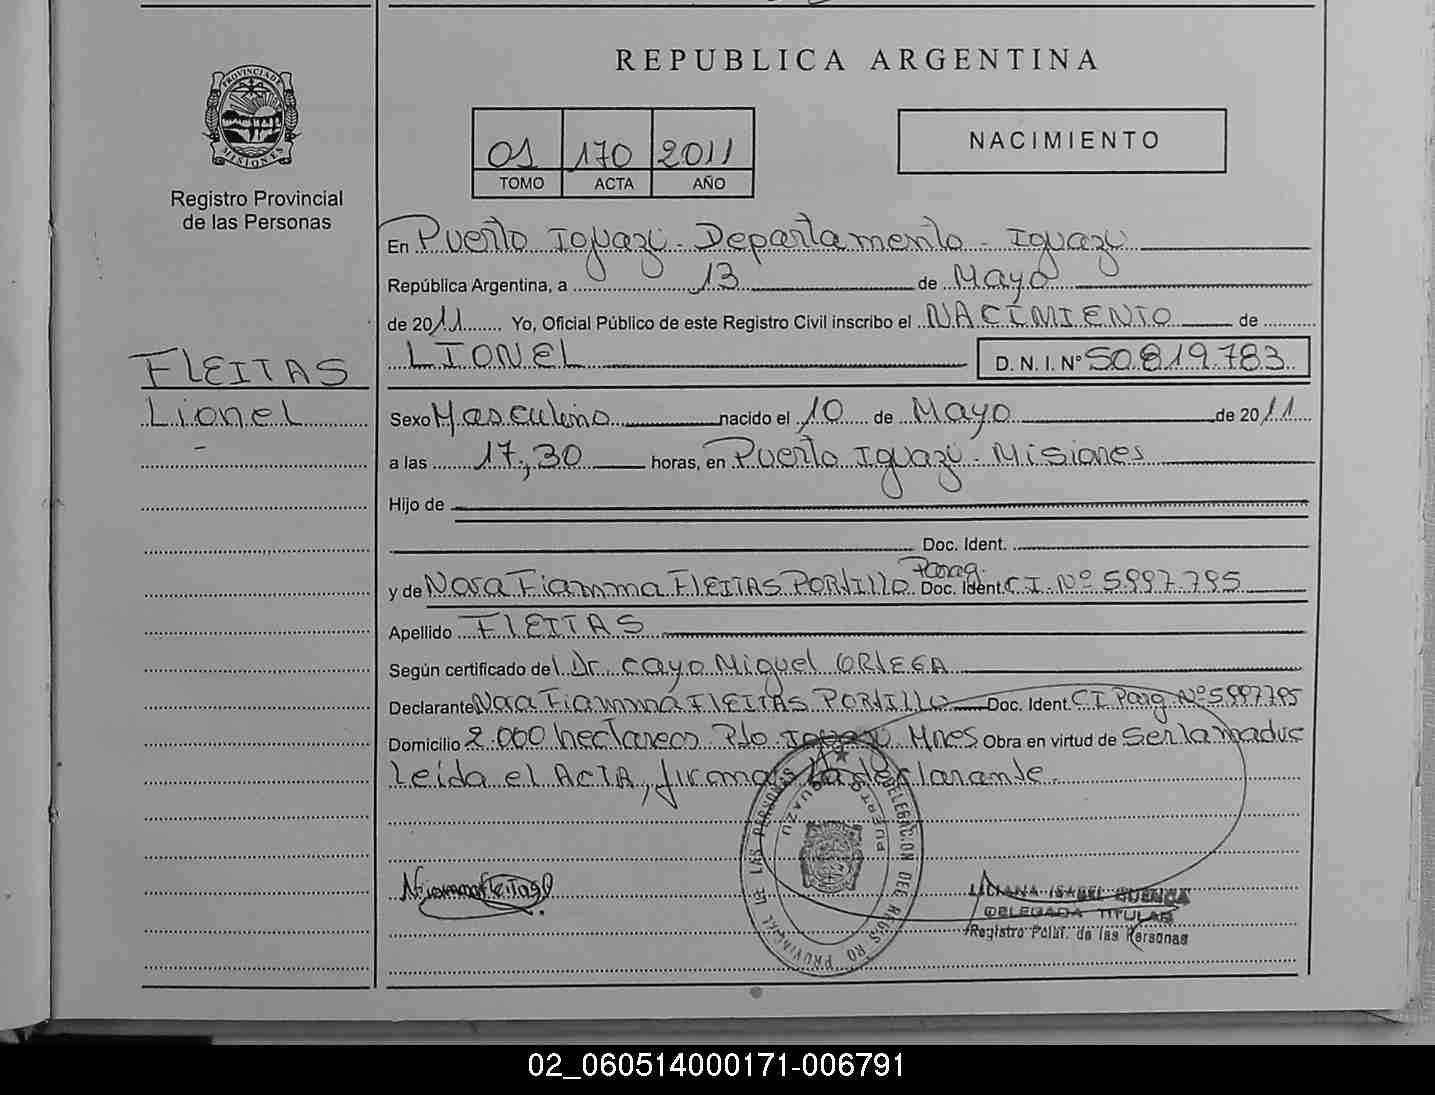 REPUBLICA ARGENTINA
PROVINCIA DE MISIONES
Registro Provincial
de las Personas
01 170 2011
TOMO ACTA AÑO
NACIMIENTO
En Puerto Iguazú - Departamento - Iguazú
República Argentina, a 13 de Mayo
de 2011 Yo, Oficial Público de este Registro Civil inscribo el NACIMIENTO de
LIONEL D. N. I. N° 50.819.783
FLEITAS
Lionel
-
Sexo Masculino nacido el 10 de Mayo de 2011
a las 17,30 horas, en Puerto Iguazú - Misiones
Hijo de
Doc. Ident.
y de Nora Fiamma FLEITAS PORTILLO Doc. Ident. Parag. C.I. Nº 5.997.795
Apellido FLEITAS
Según certificado del Dr. Cayo Miguel ORTEGA
Declarante Nora Fiamma FLEITAS PORTILLO Doc. Ident. CI Parg Nº 5.997795
Domicilio 2.000 hectareas Pto Iguazú Mnes Obra en virtud de Ser la madre
Leída el ACTA, firma la declarante.
NFiammaFleitasP
DELEGACION DEL REGISTRO PROVINCIAL DE LAS PERSONAS
PUERTO IGUAZU
LILIANA ISABEL CUENCA
DELEGADA TITULAR
Registro Pcial. de las Personas
02_060514000171-006791